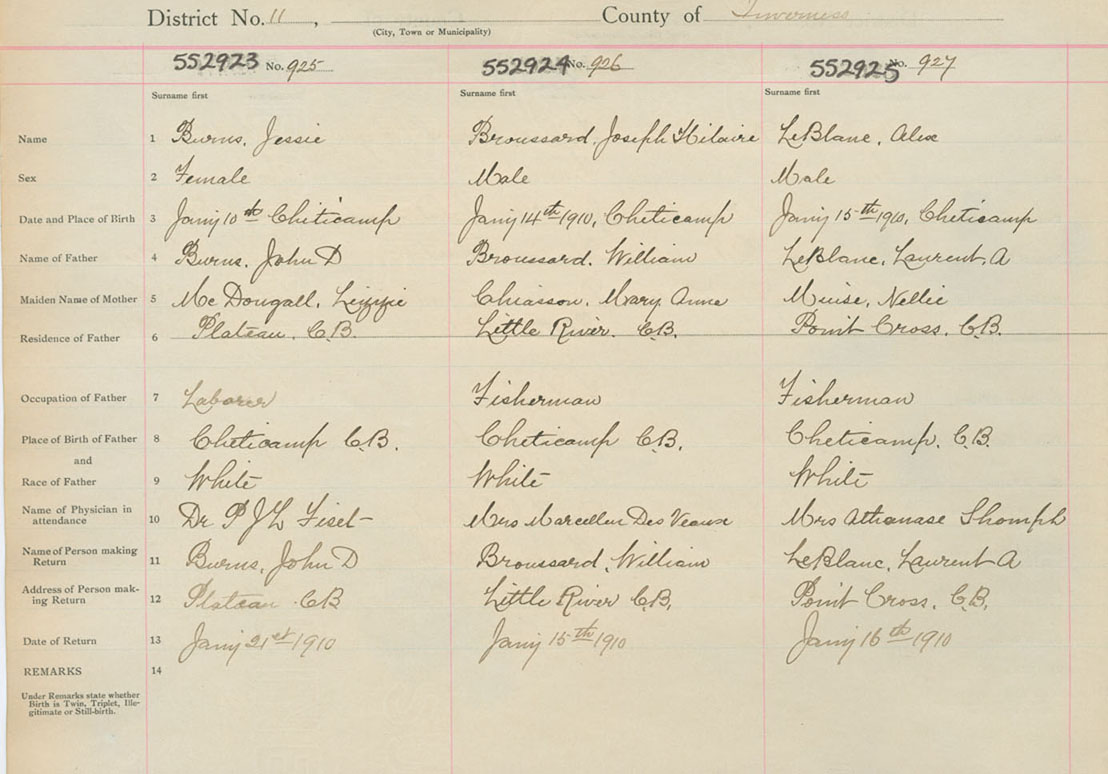 District No. 11, County of Inverness
(City, Town or Municipality)
552923 No. 925 552924 No. 926 552925 No. 927
Surname first Surname first Surname first
Name 1 Burns, Jessie Broussard, Joseph Hilaire LeBlanc, Alex
Sex 2 Female Male Male
Date and Place of Birth 3 Jany 10th Chiticamp Jany 14th 1910, Cheticamp Jany 15th 1910, Cheticamp
Name of Father 4 Burns, John D Broussard, William LeBlanc, Laurent, A
Maiden Name of Mother 5 Mc Dougall, Lizzie Chiasson, Mary Anne Muise, Nellie
Residence of Father 6 Plateau, C.B. Little River, C.B. Point Cross, C.B.
Occupation of Father 7 Laborer Fisherman Fisherman
Place of Birth of Father 8 Cheticamp C.B. Cheticamp C.B. Cheticamp, C.B.
and
Race of Father 9 White White White
Name of Physician in
attendance 10 Dr P J L Fiset Mrs Marcellin Des Veaux Mrs Athanase Shomph
Name of Person making
Return 11 Burns, John D Broussard, William LeBlanc, Laurent A
Address of Person mak-
ing Return 12 Plateau C.B Little River C.B. Point Cross, C.B.
Date of Return 13 Jany 21st 1910 Jany 15th 1910 Jany 16th 1910
REMARKS 14
Under Remarks state whether
Birth is Twin, Triplet, Ille-
gitimate or Still-birth.